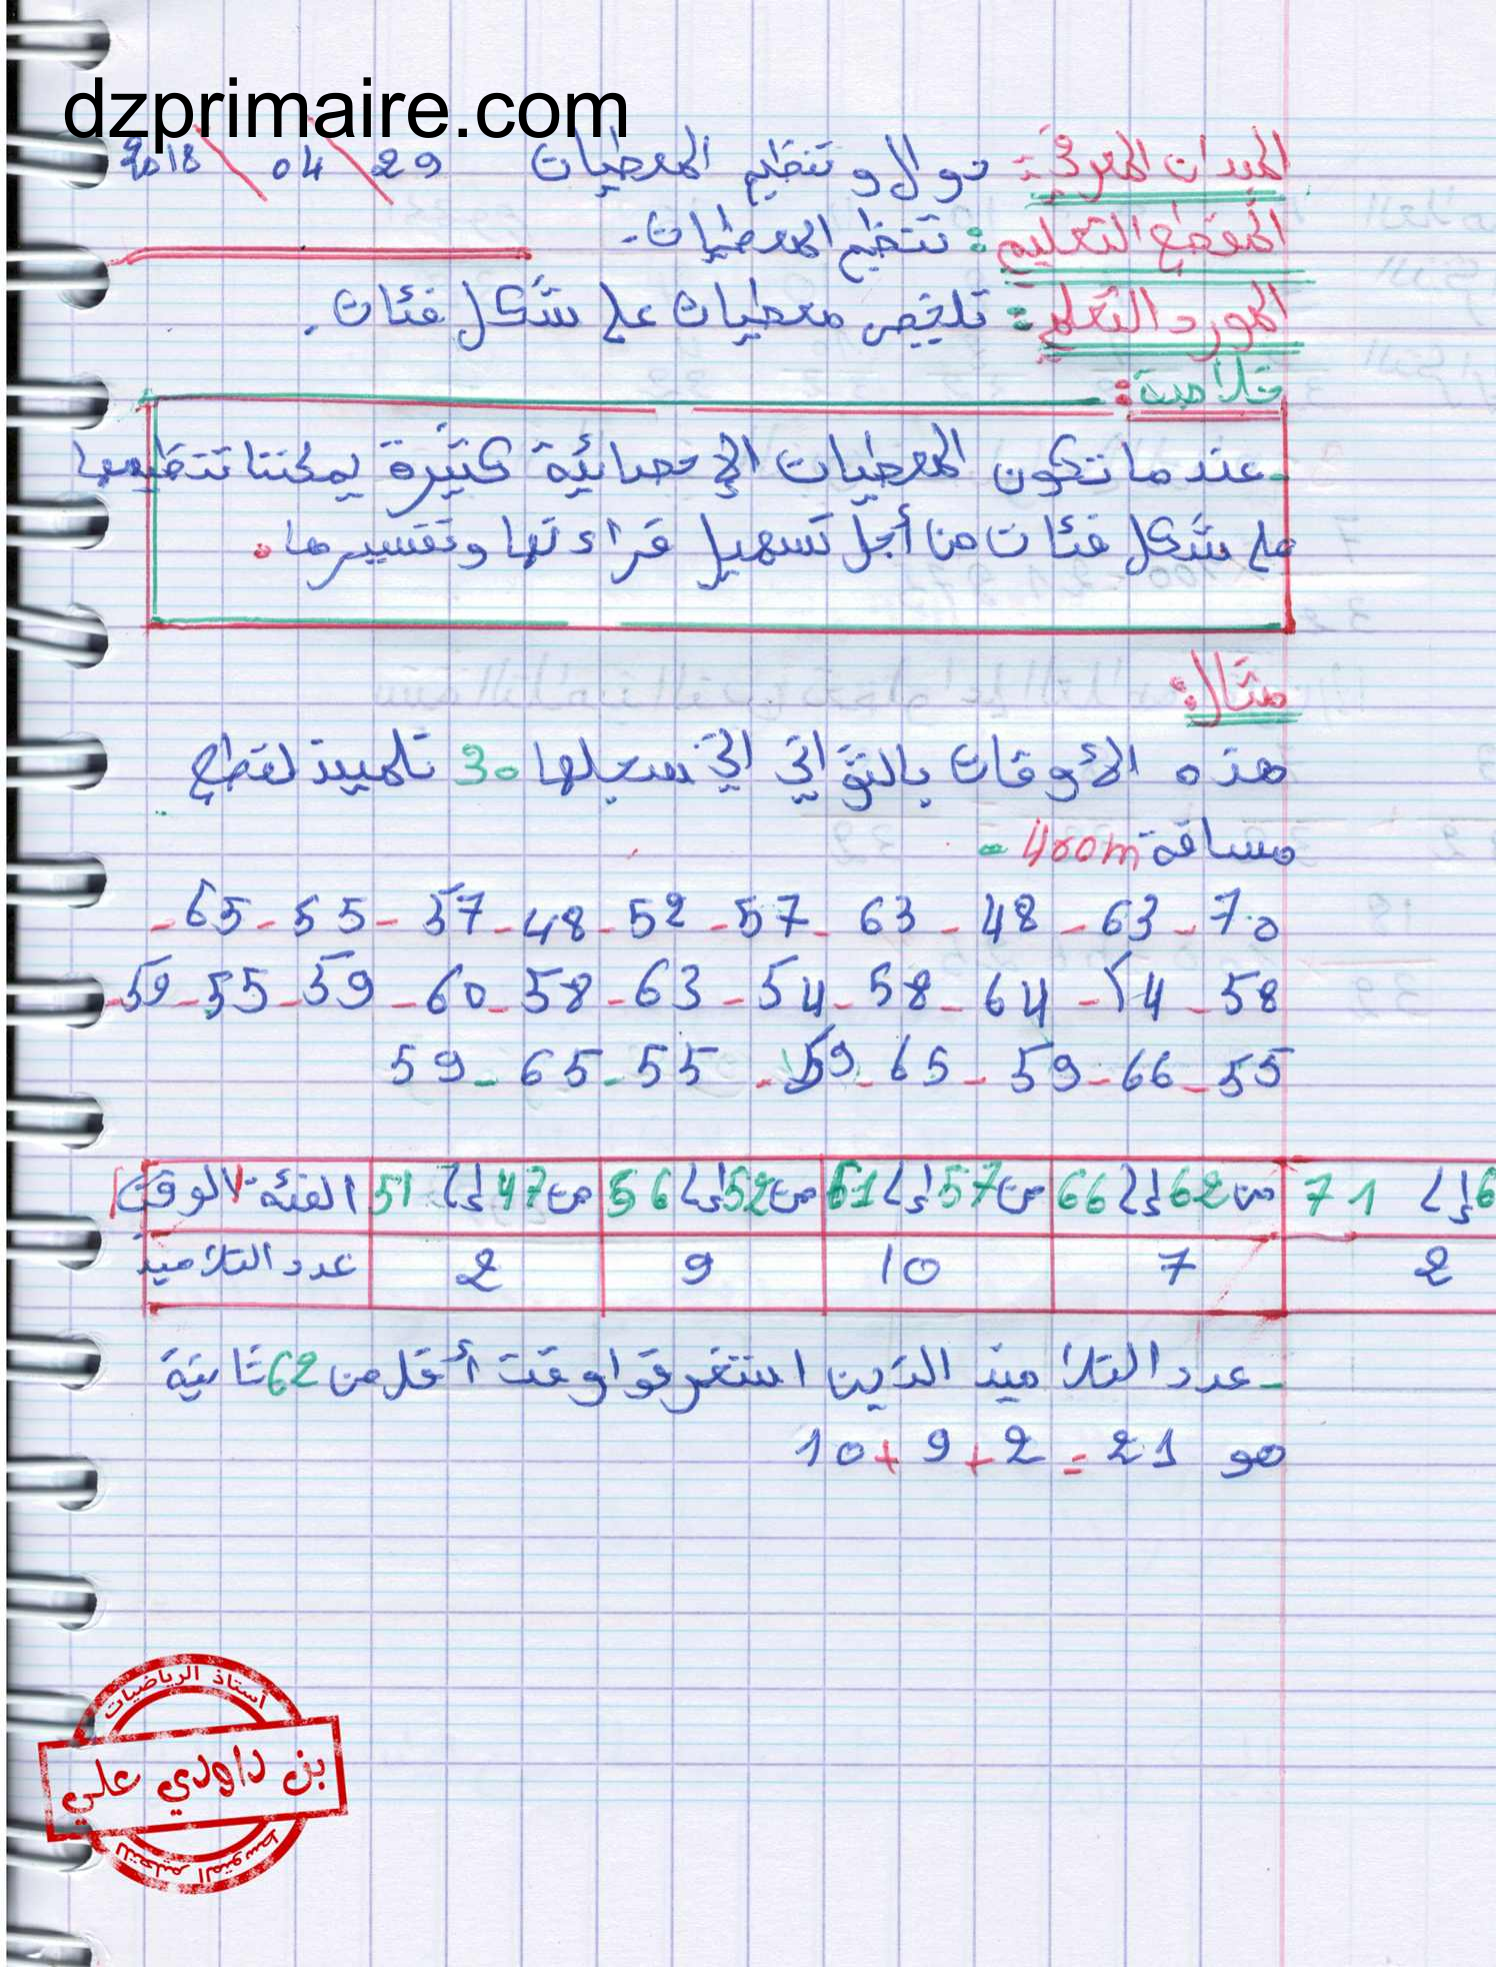 dzprimaire.com
الميدان المعرفي: دوال وتنظيم المعطيات 29 \ 04 \ 2018
المقطع التعليم: تنظيم المعطيات.
المورد التعلم: تلخيص معطيات على شكل فئات.
خلاصة:
- عندما تكون المعطيات الإحصائية كثيرة يمكننا تنظيمها
على شكل فئات من أجل تسهيل قراءتها وتفسيرها.
مثال:
هذه الأوقات بالثواني التي سجلها 30 تلميذ لقطع
مسافة 400m -
70 - 63 - 48 - 63 - 57 - 52 - 48 - 57 - 55 - 65 -
58 - 64 - 58 - 54 - 63 - 58 - 60 - 59 - 55 - 59 -
55 - 66 - 59 - 65 - 59 - 55 - 65 - 59
الفئة: الوقت من 47 إلى 51 من 52 إلى 56 من 57 إلى 61 من 62 إلى 66 إلى 71
عدد التلاميذ 2 9 10 7 2
- عدد التلاميذ الذين استغرقوا وقت أقل من 62 ثانية
هو 10 + 9 + 2 = 21
أستاذ الرياضيات
بن داودي علي
للتعليم المتوسط